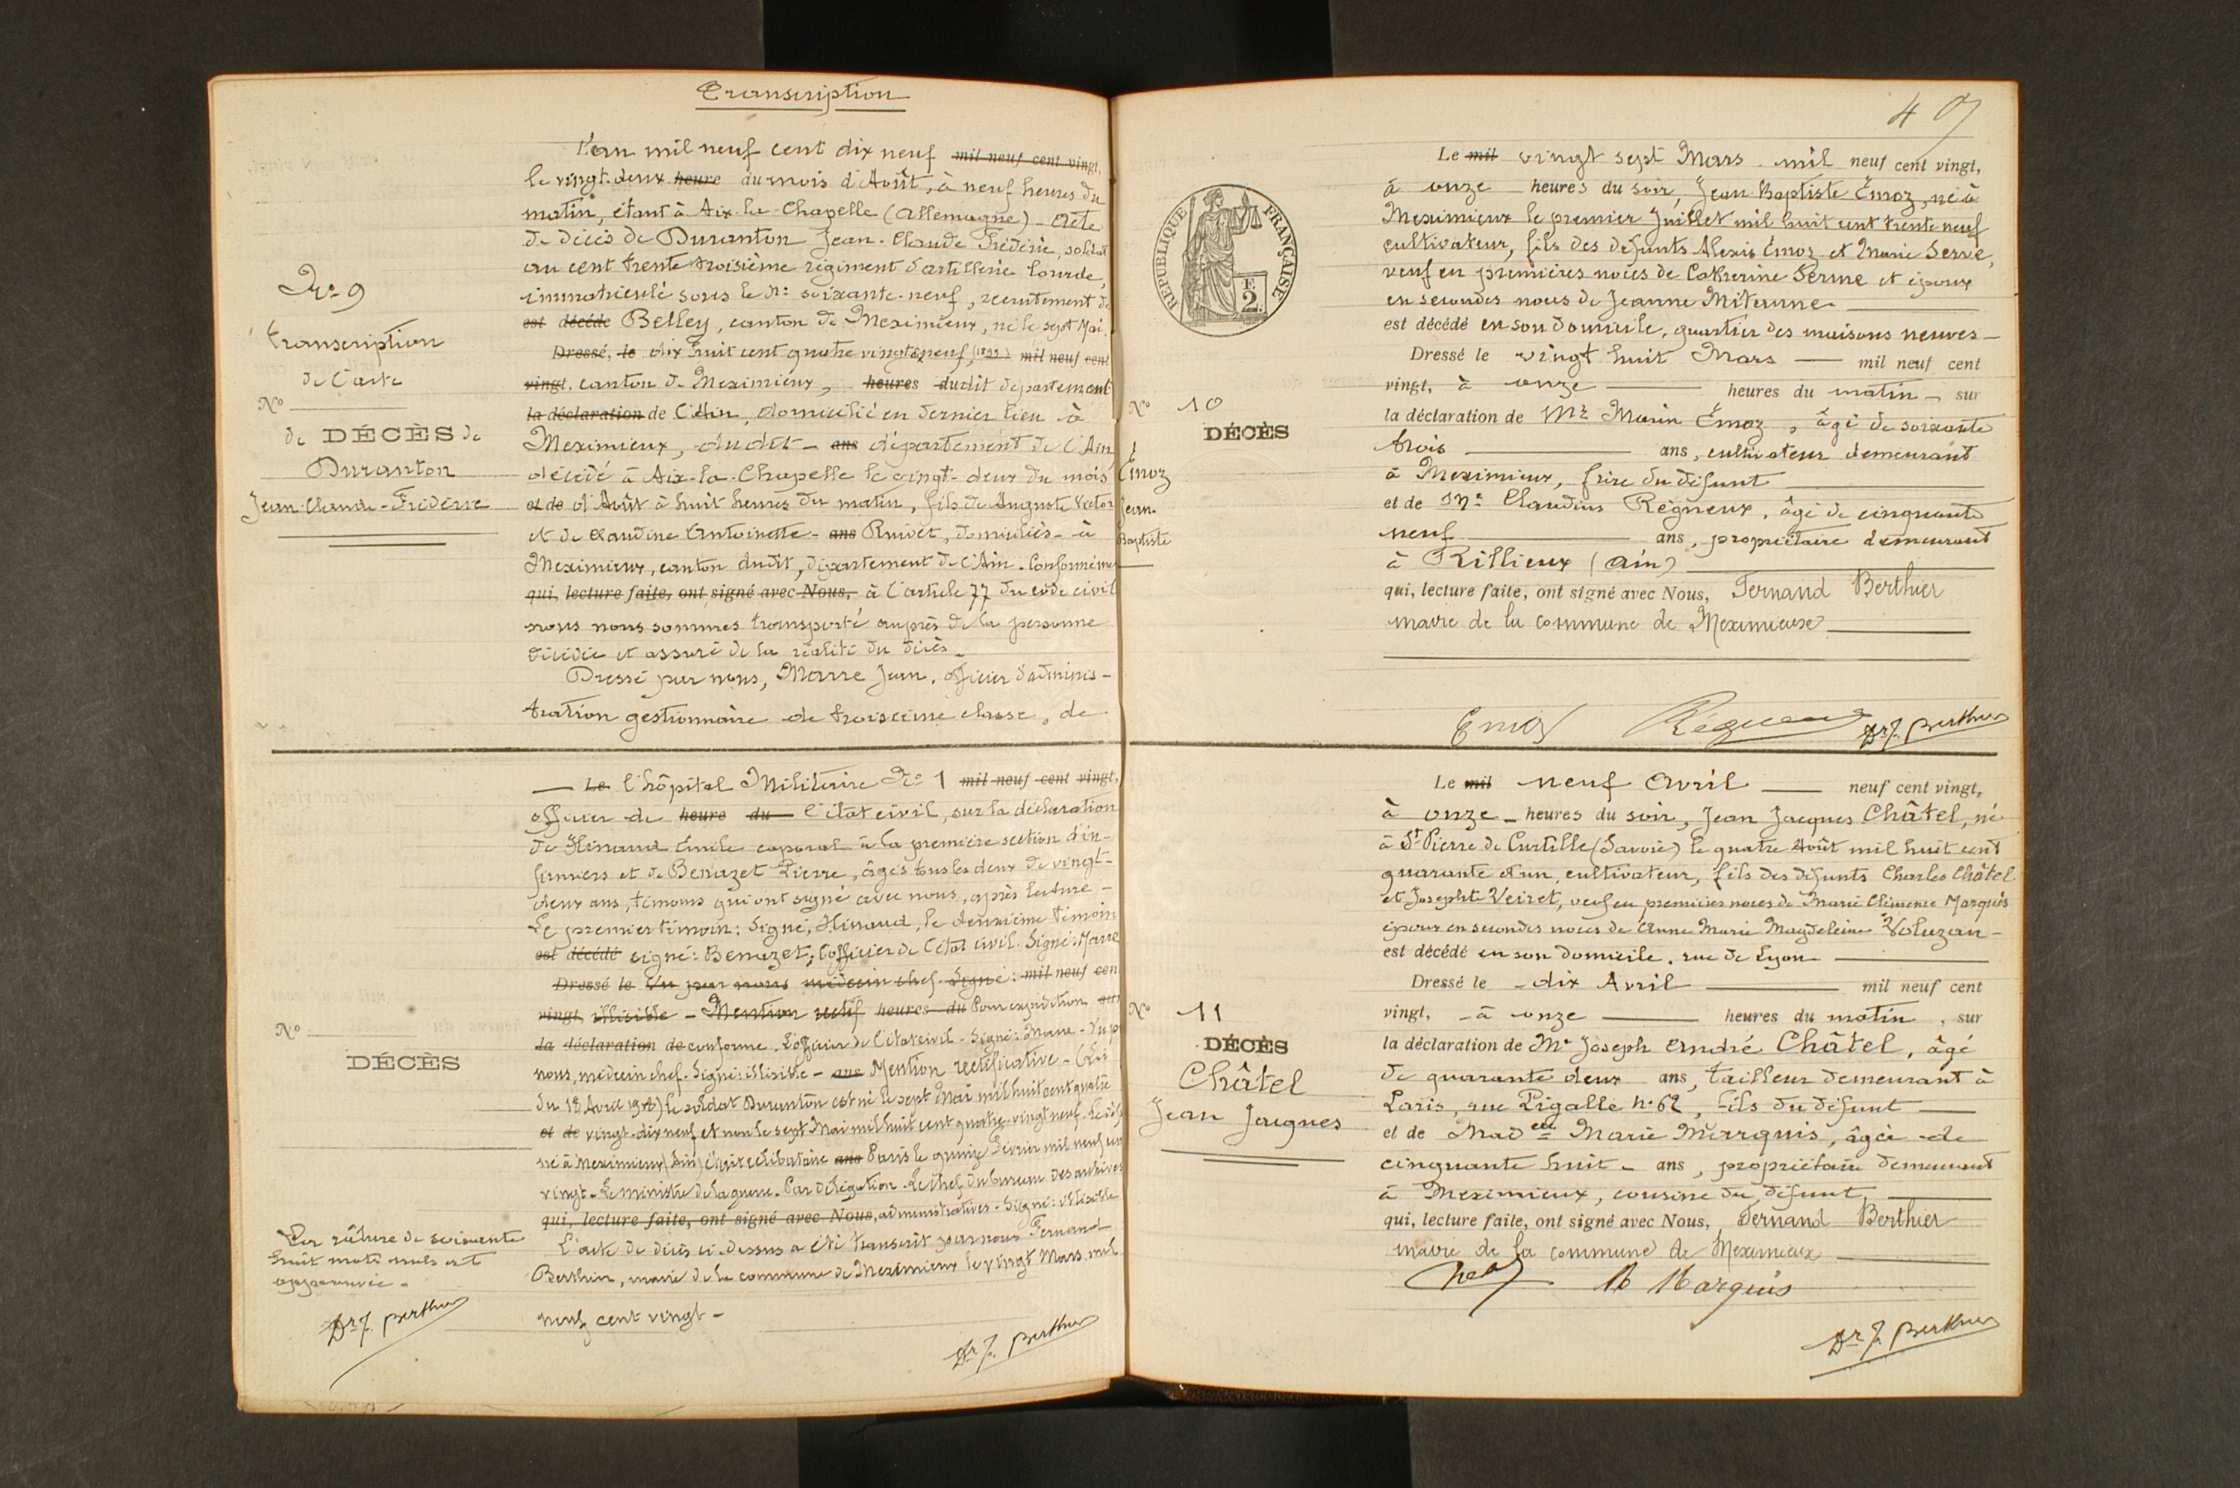 Transcription
L'an mil neuf cent dix neuf mil neuf cent vingt,
le vingt-deux heure du mois d'Août, à neuf heures du
matin, étant à Aix-la-Chapelle (Allemagne) - Acte
de décès de Duranton Jean-Claude Frédéric, soldat
au cent trente troisième régiment d'artillerie lourde,
immatriculé sous le No: soixante-neuf, recrutement de
est décédé Belley, canton de Meximieux, né le sept Mai
Dressé, le dix huit cent quatre vingt neuf, mil neuf cent
vingt, canton de Meximieux, heures dudit département
la déclaration de l'Ain, domicilié en dernier lieu à
Meximieux, dudit - ans département de l'Ain
décédé à Aix-la-Chapelle le vingt-deux du mois
et de d'Août à huit heures du matin, fils de Auguste Victor
et de Claudine Antoinette - ans Ruivet, domiciliés - à
Meximieux, canton dudit, département de l'Ain. Conformément
qui, lecture faite, ont signé avec Nous, à l'article 77 du code civil
nous nous sommes transporté auprès de la personne
décédée et assuré de la réalité du décès.
Dressé par nous, Marre Jean, officier d'adminis-
tration gestionnaire de troisième classe, de
No 9
Transcription
de l'acte
No
de DÉCÈS de
Duranton
Jean-Claude-Frédéric
Le l'hôpital Militaire No 1 mil neuf cent vingt,
officier de heure du l'état civil, sur la déclaration
de Hinaud Emile caporal à la première section d'in-
firmiers et de Benazet Pierre, âgés tous les deux de vingt-
deux ans, témoins qui ont signé avec nous, après lecture -
Le premier témoin: Signé, Hinaud, le deuxième témoin
est décédé signé: Benazet; l'officier de l'état civil. Signé: Marre
Dressé le Vu par nous médecin chef. Signé: mil neuf cen
vingt, illisible - Mention rectif heures du Pour expédition
la déclaration de conforme. L'officier de l'état civil - Signé: Marre - Vu p
nous, médecin chef. Signé: illisible - ans Mention rectificative - (Loi
du 18 Avril 1918) le soldat Duranton est né le sept Mai mil huit cent quatre
et de vingt-dix neuf et non le sept Mai mil huit cent quatre-vingt neuf.
né à Meximieux (Ain) était célibataire ans Paris le quinze Février mil neuf cent
vingt - Le ministre de la guerre. Par délégation - Le chef du bureau des archives
qui, lecture faite, ont signé avec Nous, administratives - Signé: illisible
L'acte de décès ci-dessus a été transcrit par nous Fernand
Berthier, maire de la commune de Meximieux le vingt Mars mil
neuf cent vingt -
Dr F. Berthier
No
DÉCÈS
Par rature de soixante
huit mots nuls est
approuvée -
Dr F. Berthier
49
RÉPUBLIQUE FRANÇAISE
2 F.
Le mil vingt sept Mars mil neuf cent vingt,
à onze heures du soir, Jean-Baptiste Émoz, né à
Meximieux le premier Juillet mil huit cent trente neuf
cultivateur, fils des défunts Alexis Émoz et Marie Serve,
veuf en premières noces de Catherine Serme et époux
en secondes noces de Jeanne Miterme
est décédé en son domicile, quartier des maisons neuves -
Dressé le vingt huit Mars mil neuf cent
vingt, à onze heures du matin, sur
la déclaration de Mr Marin Émoz, âgé de soixante
trois ans, cultivateur demeurant
à Meximieux, frère du défunt
et de Mr Claudius Régneux, âgé de cinquante
neuf ans, propriétaire demeurant
à Rillieux (Ain)
qui, lecture faite, ont signé avec Nous, Fernand Berthier
maire de la commune de Meximieux
No 10
DÉCÈS
Émoz
Jean-
Baptiste
Emoz Régneux Dr F. Berthier
Le mil neuf Avril neuf cent vingt,
à onze heures du soir, Jean Jacques Châtel, né
à St Pierre de Curtille (Savoie) le quatre Août mil huit cent
quarante d'un, cultivateur, fils des défunts Charles Châtel
et Josephte Veiret, veuf en premières noces de Marie Clémence Marquis
époux en secondes noces de Anne Marie Magdeleine Voluzan -
est décédé en son domicile, rue de Lyon
Dressé le dix Avril mil neuf cent
vingt, à onze heures du matin, sur
la déclaration de Mr Joseph André Châtel, âgé
de quarante deux ans, tailleur demeurant à
Paris, rue Pigalle No 62, fils du défunt
et de Madelle Marie Marquis, âgée de
cinquante huit - ans, propriétaire demeurant
à Meximieux, cousine du défunt,
qui, lecture faite, ont signé avec Nous, Fernand Berthier
maire de la commune de Meximieux
No 11
DÉCÈS
Châtel
Jean Jacques
M Marquis
Dr F. Berthier